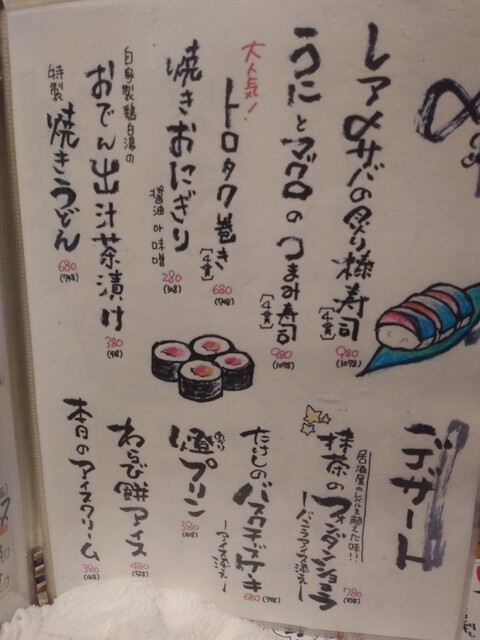 〆
レア〆サバの炙り棒寿司
[4貫]
980
(1078)
うにとマグロのつまみ寿司
[4貫]
980
(1078)
大人気!
トロタク巻き
[4貫]
680
(748)
焼きおにぎり
醤油or味噌
280
(308)
自家製鶏白湯の
おでん出汁茶漬け
380
(418)
特製
焼きうどん
680
(748)
デザート
居酒屋のレベルを超えた味い!!
抹茶のフォンダンショコラ
―バニラアイス添え―
780
(858)
たけしのバスクチーズケーキ
―アイス添え―
680
(748)
燈プリン
380
(418)
わらび餅アイス
480
(528)
本日のアイスクリーム
380
(418)